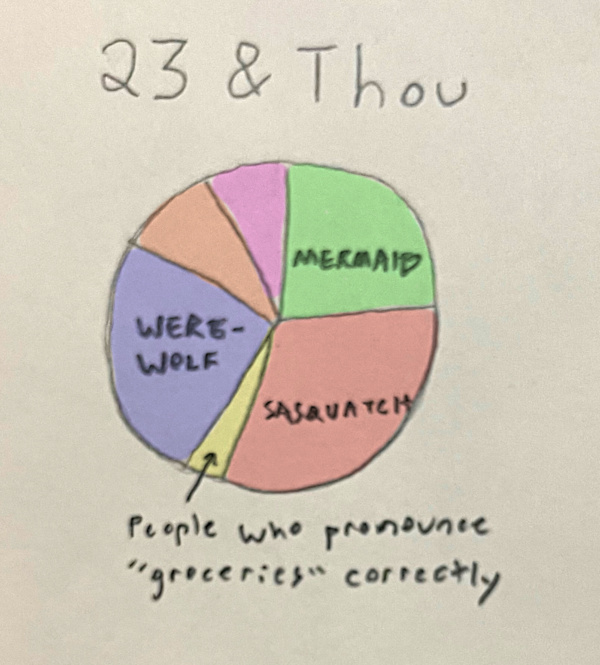 23 & Thou
MERMAID
WERE-
WOLF
SASQUATCH
People who pronounce
"groceries" correctly